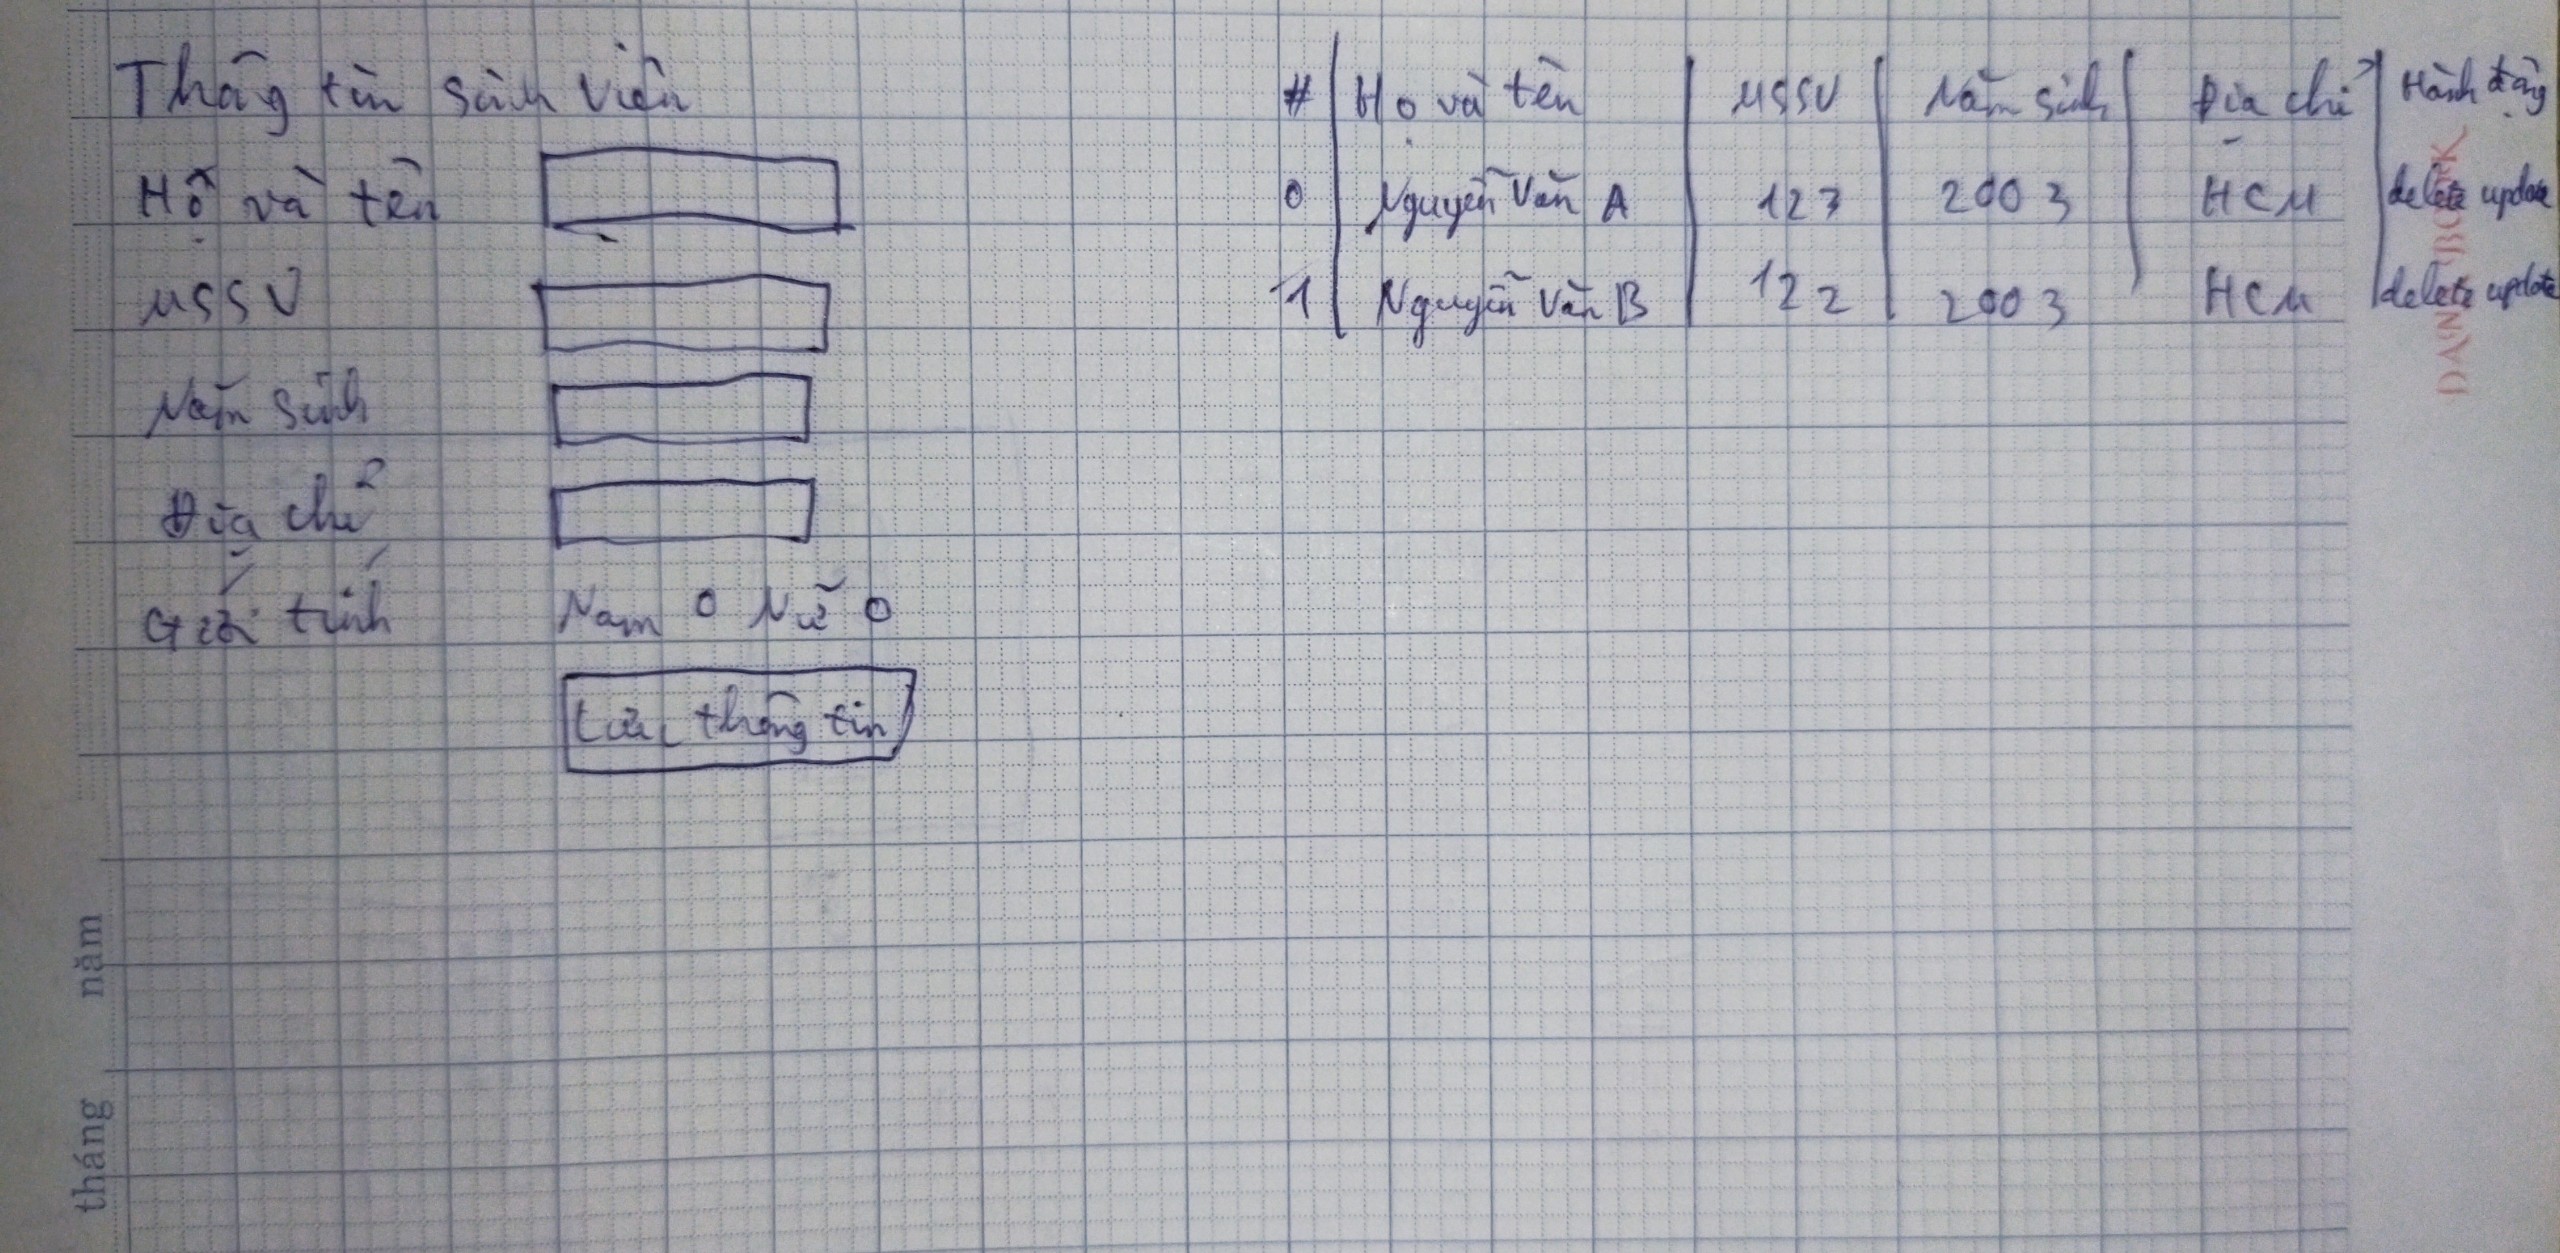 Thông tin sinh viên
Họ và tên
MSSV
Năm sinh
Địa chỉ
Giới tính Nam Nữ
Lưu thông tin
# Họ và tên MSSV Năm sinh Địa chỉ Hành động
0 Nguyễn Văn A 123 2003 HCM delete update
1 Nguyễn Văn B 122 2003 HCM delete update
tháng năm